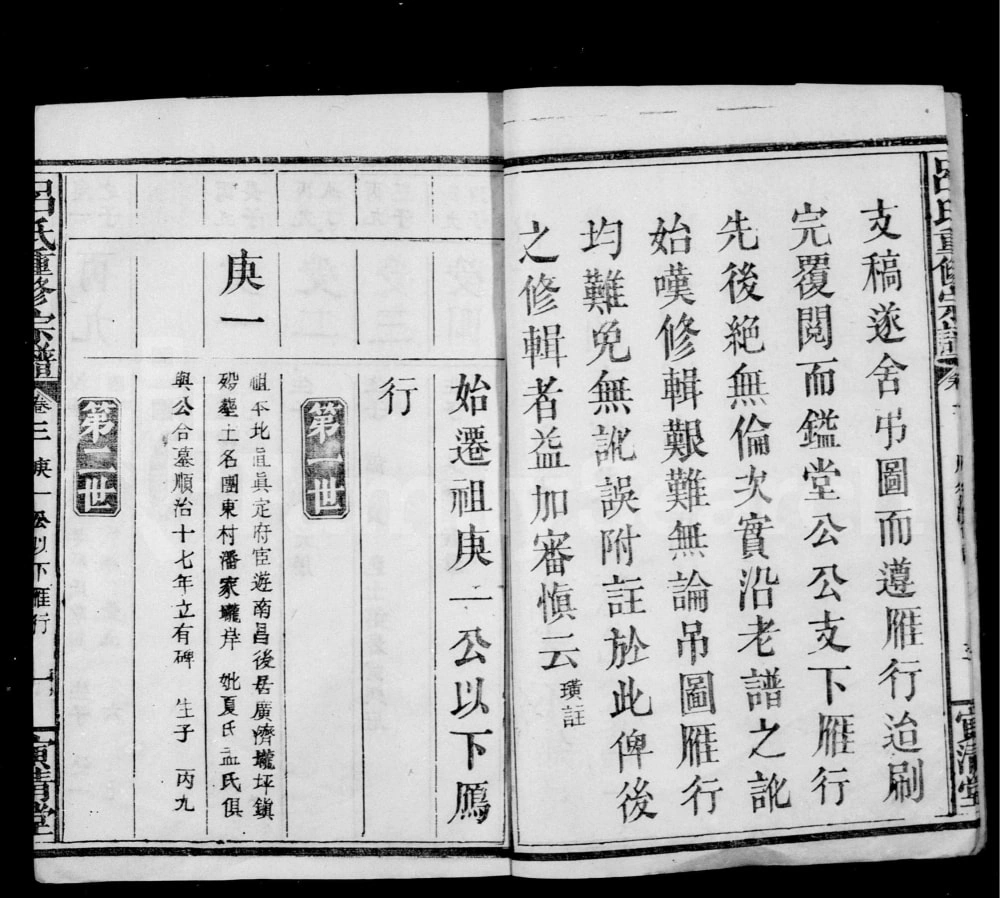 呂氏重修宗譜
寅清堂
支稿遂舍吊圖而遵雁行迨刷
完覆閱而鑑堂公公支下雁行
先後絶無倫次實沿老譜之訛
始嘆修輯艱難無論吊圖雁行
均難免無訛誤附註於此俾後
之修輯者益加審慎云 璜註
始遷祖庚一公以下鴈
行
第一世
庚一
祖本北直眞定府宦遊南昌後居廣濟壠坪鎮
歿墓土名團東村潘家壠岸 妣夏氏孟氏俱
與公合墓順治十七年立有碑 生子 丙九
第二世
呂氏重修宗譜 卷三 庚一公以下雁行 一 寅清堂